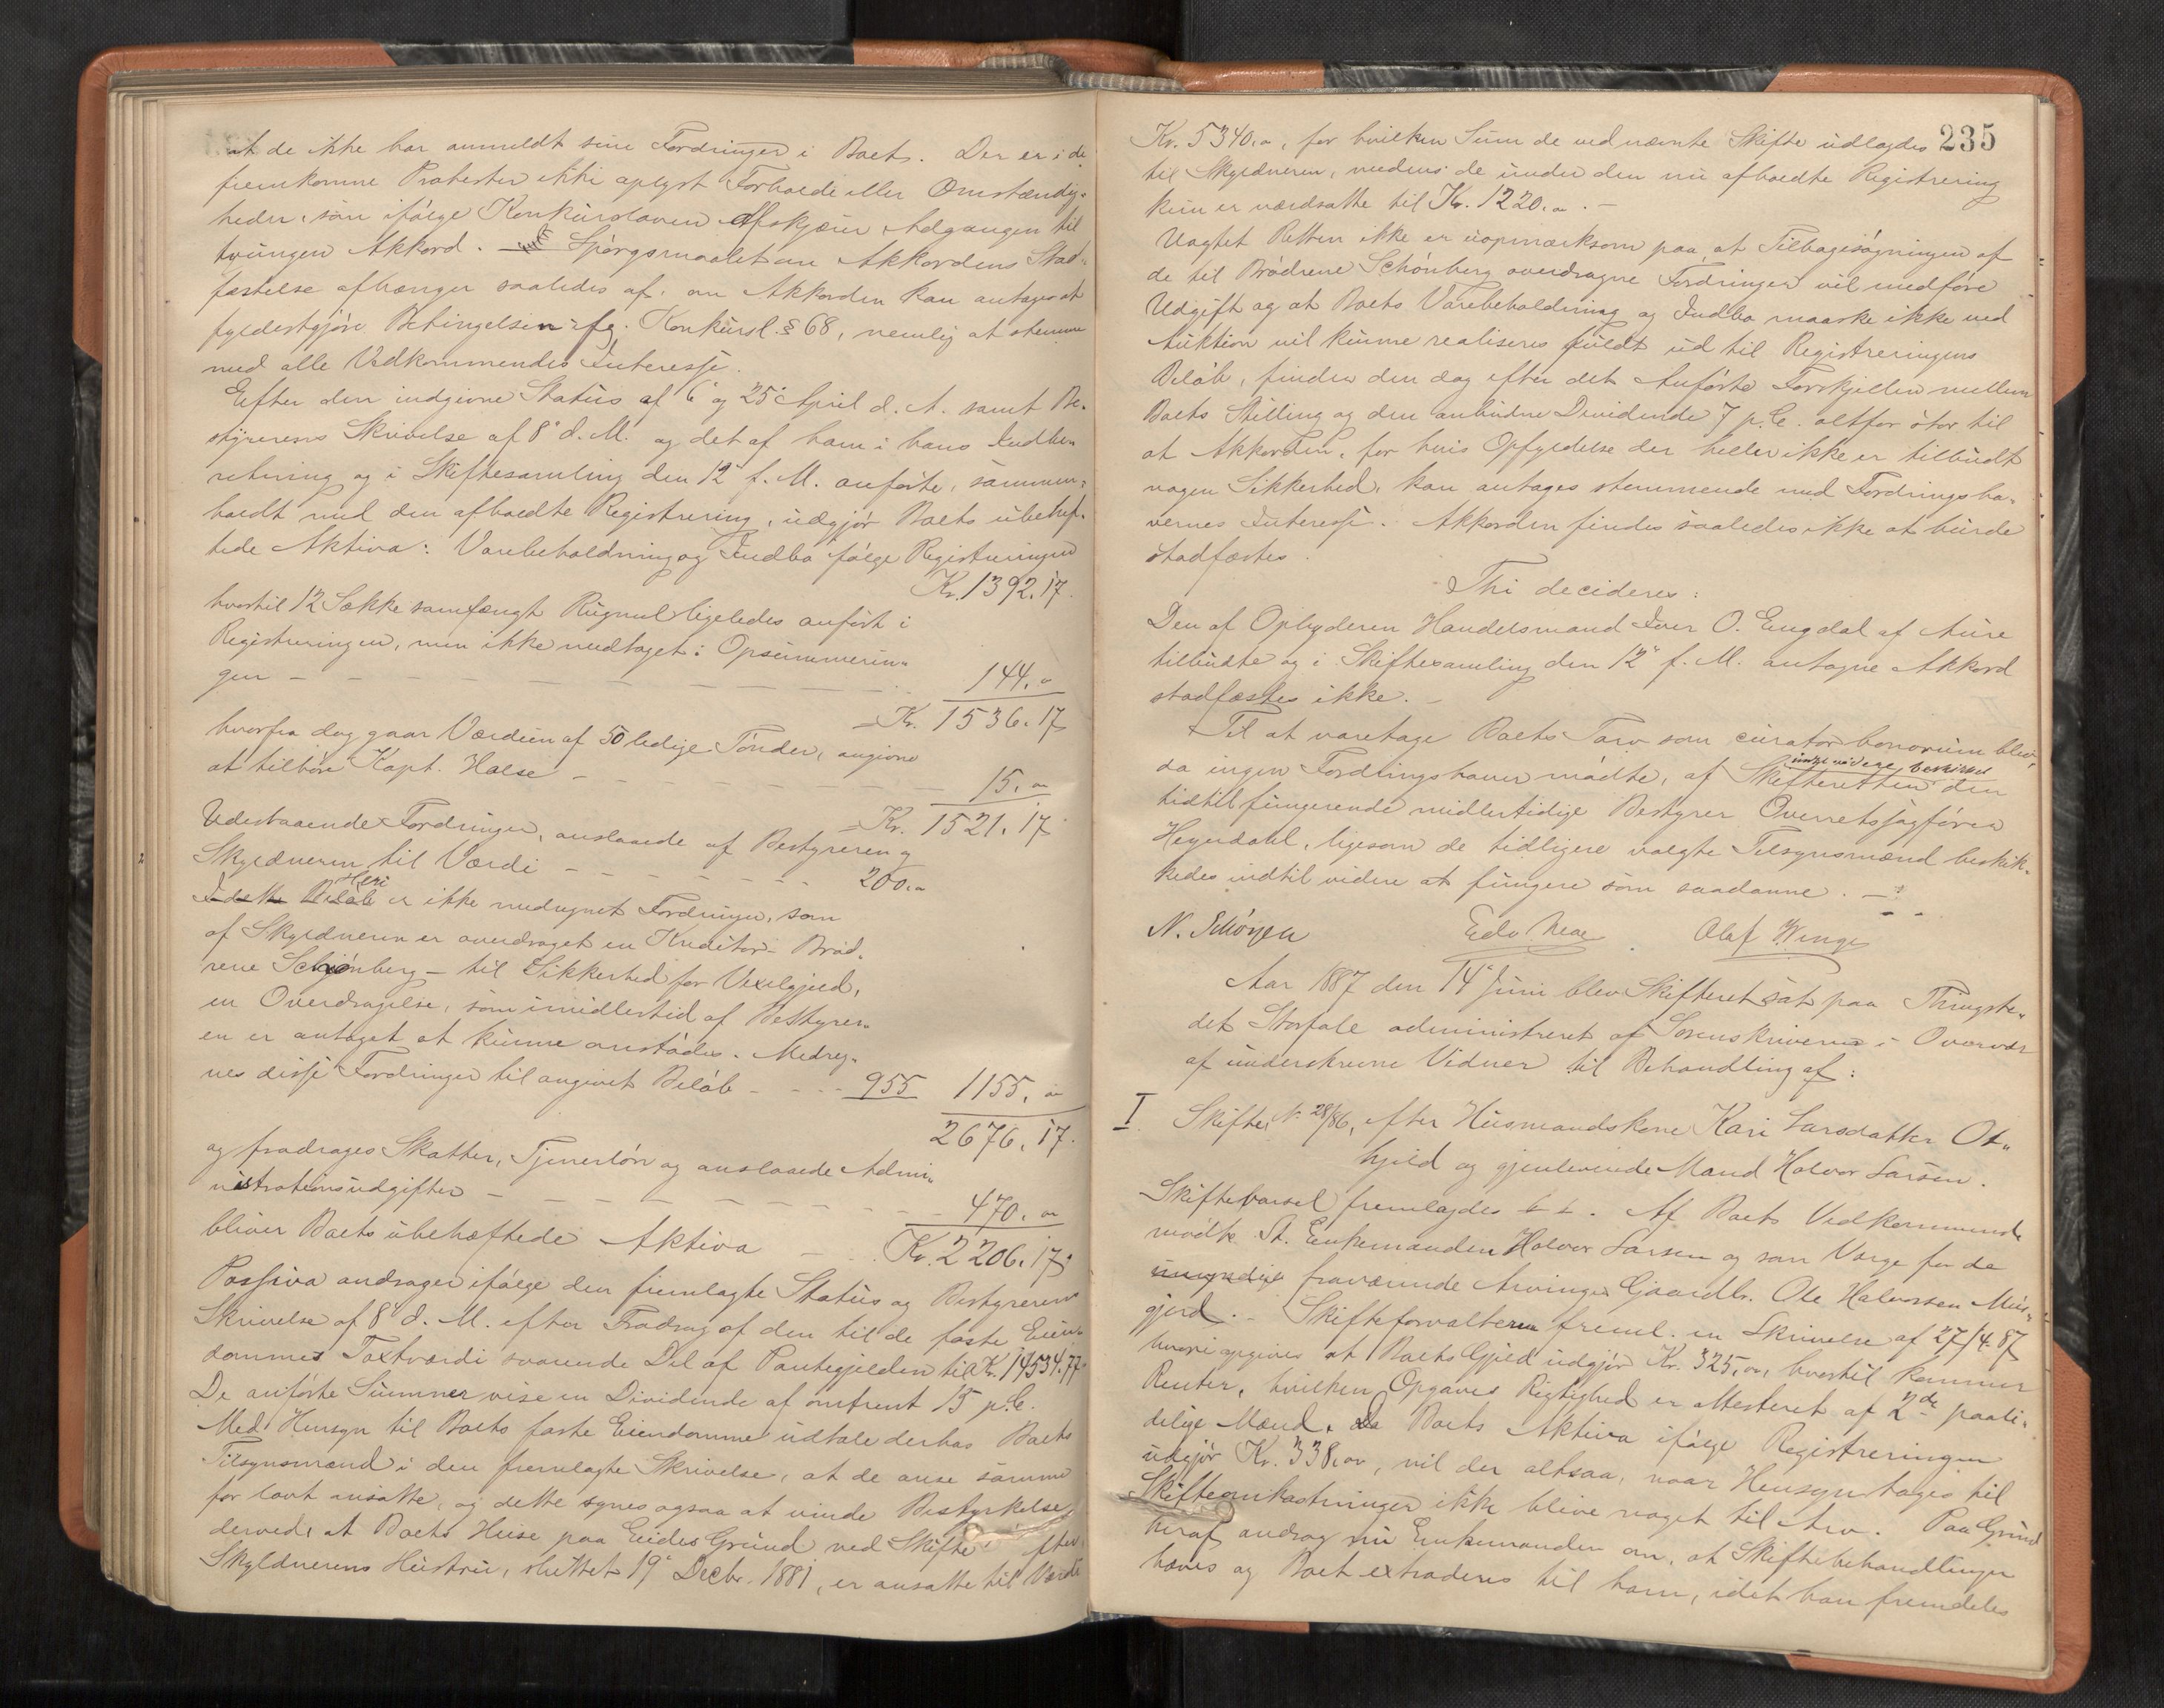 at de ikke har anmeldt sine Fordringer i Boet. Der er i de
fremkomne Protester ikke oplyst Forholde eller Omstændig-
heder, som ifølge Konkursloven afskjærer Adgangen til
tvungen Akkord. Spørgsmaalet om Akkordens Stad-
fæstelse afhænger saaledes af, om Akkorden kan antages at
fyldestgjøre Betingelsen efg. Konkursl. § 68, nemlig at stemme
med alle Vedkommendes Interesse.
Efter den indgivne Status af 6' og 25' April d. A. samt Be-
styrerens Skrivelse af 8' d. M. og det af ham i hans Indbe-
retning og i Skiftesamling den 12' f. M. anførte, sammen-
holdt med den afholdte Registrering, udgjør Boets ubehef-
tede Aktiva: Varebeholdning og Indbo følge Registreringen
Kr. 1392.17.
hvortil 12 Sække samfængt Rugmel ligeledes anført i
Registreringen, men ikke medtaget i Opsummerin-
gen - - - 144.00
Kr. 1536.17
hvorfra dog gaar Værdien af 50 ledige Tønder, angivne
at tilhøre Kapt. Halse - - - 15.00
Kr. 1521.17
Udestaaende Fordringer, anslaaede af Bestyreren og
Skyldneren til Værdi - - - 200.00
I dette Beløb Heri er ikke medregnet Fordringer, som
af Skyldneren er overdraget en Kreditor - Brød-
rene Schjønberg - til Sikkerhed for Vexelgjeld,
en Overdragelse, som imidlertid af Bestyrer-
en er antaget at kunne omstødes. Medreg-
nes disse Fordringer til angivet Beløb - - - 955 1155.00
2676.17.
og fradrages Skatter, Tjenerløn og anslaaede Admi-
nistrationsudgifter - - - 470.00
bliver Boets ubehæftede Aktiva - - Kr. 2206.17
Passiva andrager ifølge den fremlagte Status og Bestyrerens
Skrivelse af 8' d. M. efter Fradrag af den til de faste Eien-
dommes Taxtværdi svarende Del af Pantegjelden til Kr. 14534.77.
De anførte Summer vise en Dividende af omtrent 15 p.C.
Med Hensyn til Boets faste Eiendomme udtale derhos Boets
Tilsynsmænd i den fremlagte Skrivelse, at de anse samme
for lavt ansatte, og dette synes ogsaa at vinde Bestyrkelse
derved, at Boets Huse paa Eides Grund ved Skifte efter
Skyldnerens Hustru, sluttet 19' Decbr. 1881, er ansatte til Værdi
235
Kr. 5340.00, for hvilken Sum de ved nævnte Skifte udlagdes
til Skyldneren, medens de under den nu afholdte Registrering
kun er værdsatte til Kr. 1220.00. -
Uagtet Retten ikke er uopmærksom paa, at Tilbagesøgningen af
de til Brødrene Schønberg overdragne Fordringer vil medføre
Udgift og at Boets Varebeholdning og Indbo maaske ikke ved
Auktion vil kunne realiseres fuldt ud til Registreringens
Beløb, findes den dog efter det Anførte Forskjellen mellem
Boets Stilling og den anbudne Dividende 7 p.C. altfor stor til
at Akkorden, for hvis Opfyldelse der heller ikke er tilbudt
nogen Sikkerhed, kan antages stemmende med Fordringsha-
vernes Interesse. Akkorden findes saaledes ikke at burde
stadfæstes.
Thi decideres:
Den af Opbyderen Handelsmand Iver O. Engdal af Aure
tilbudte og i Skiftesamling den 12' f. M. antagne Akkord
stadfæstes ikke. -
Til at varetage Boets Tarv som curator bonorum blev,
da ingen Fordringshaver mødte, af Skifteretten indtil videre beskikket den
hidtil fungerende midlertidige Bestyrer Overretssagfører
Heyerdahl, ligesom de tidligere valgte Tilsynsmænd beskik-
kedes indtil videre at fungere som saadanne. -
Edv Moe Olaf Winge
Aar 1887 den 14' Juni blev Skifteret sat paa Thingste-
det Storfale administreret af Sorenskriveren i Overvær
af underskrevne Vidner til Behandling af:
I. Skifte, N. 28/86, efter Husmandskone Kari Larsdatter Ot-
hjeld og gjenlevende Mand Halvor Larsen.
Skiftevarsel fremlagdes. Af Boets Vedkommende
mødte St. Enkemanden Halvor Larsen og som Værge for de
umyndige fraværende Arvinger Gaardbr. Ole Halvorsen Mus-
gjerd. - Skifteforvalteren freml. en Skrivelse af 27/4 87
hvori opgives at Boets Gjeld udgjør Kr. 325.00, hvortil kommer
Renter, hvilken Opgaves Rigtighed er attesteret af 2de paali-
delige Mænd. Da Boets Aktiva ifølge Registreringen
udgjør Kr. 338.00, vil der altsaa, naar Hensyn tages til
Skifteomkostninger ikke blive noget til Arv. Paa Grund
heraf androg nu Enkemanden om, at Skiftebehandlingen
hæves og Boet extraderes til ham, idet han fremdeles